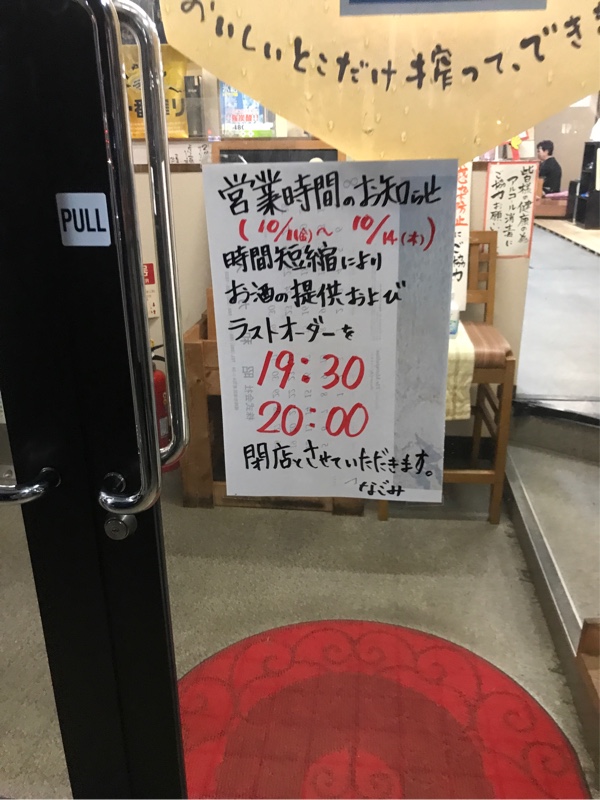 おいしいとこだけ搾って、でき
一番搾り
PULL
営業時間のお知らせ
(10/1(金)～10/14(木))
時間短縮により
お酒の提供および
ラストオーダーを
19:30
20:00
閉店とさせていただきます。
なごみ
にご協力
皆様の健康の為
アルコール消毒に
ご協力お願い